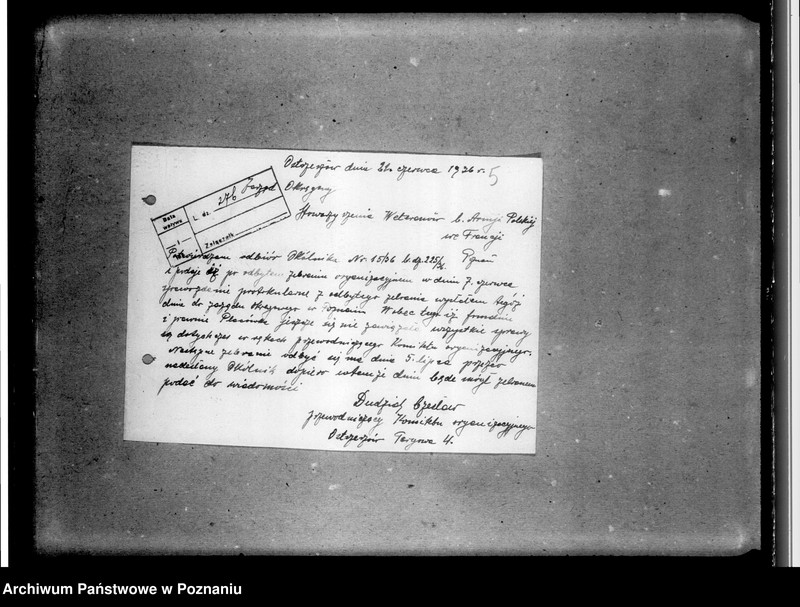 Ostrzeszów dnia 21. czerwca 1936 r. 5
Data wpływu
L. dz. 276
Załącznik
Zarząd Okręgowy
Stowarzyszenia Weteranów b. Armji Polskiej
we Francji
Poznań
Potwierdzam odbiór Okólnika Nr 15/36 L. dz. 225/36
i podaję że po odbytem zebraniu organizacyjnem w dniu 7. czerwca
sprawozdanie protokularne z odbytego zebrania wysłałem tegoż
dnia do zarządu okręgowego w Poznaniu. Wobec tego iż formalnie
i prawnie Placówka jeszcze się nie zawiązała wszystkie sprawy
są dotychczas w rękach przewodniczącego Komitetu organizacyjnego.
Następne zebranie odbyć się ma dnia 5. lipca przeto
nadesłany Okólnik dopiero w temże dniu będę mógł zebranym
podać do wiadomości
Dudziak Czesław
przewodniczący Komitetu organizacyjnego
Ostrzeszów Targowa 4.
Archiwum Państwowe w Poznaniu